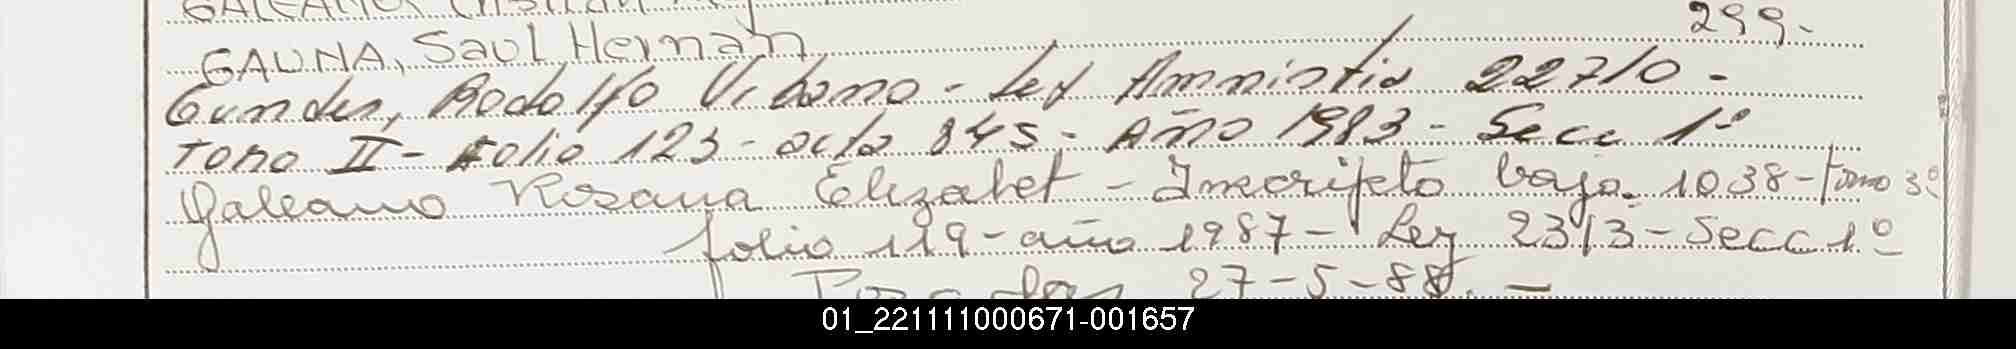 GALEANO, Cristian
GAUNA, Saul Hernan 299.-
Gundes, Rodolfo Urbano - Ley Amnistia 22710 -
Tomo II - Folio 123 - acta 845 - Año 1983 - Secc 1º
Galeano Rosana Elizabet - Inscripto bajo 1038 - tomo 3º
folio 119 - año 1987 - Ley 2313 - Secc 1º
Posadas 27-5-88. -
01_221111000671-001657